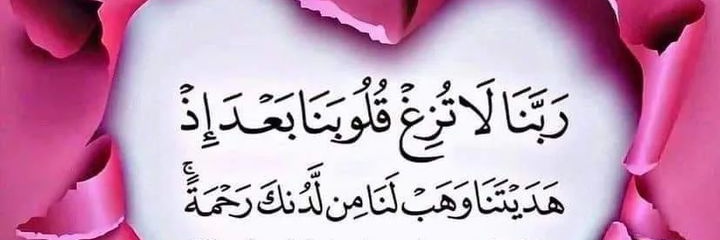 رَبَّنَا لَا تُزِغْ قُلُوبَنَا بَعْدَ إِذْ
هَدَيْتَنَا وَهَبْ لَنَا مِن لَّدُنكَ رَحْمَةً ۚ